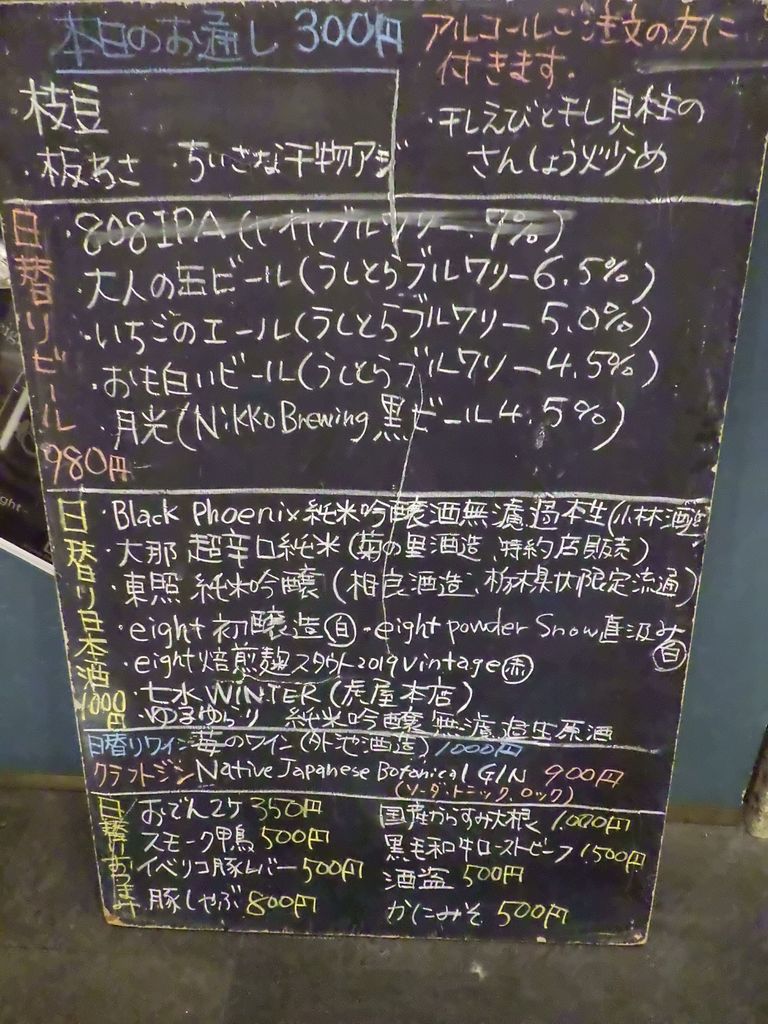 本日のお通し 300円
アルコールご注文の方に
付きます。
枝豆
・板わさ ・ちいさな干物アジ
・干しえびと干し貝柱の
さんしょう炒め
日替りビール
980円
・808 IPA (ブルワリー 7%)
・大人の缶ビール(うしとらブルワリー 6.5%)
・いちごのエール(うしとらブルワリー 5.0%)
・おも白いビール(うしとらブルワリー 4.5%)
・月光(Nikko Brewing 黒ビール 4.5%)
日替り日本酒
1000円
・Black Phoenix 純米吟醸酒無濾過本生(小林酒造
・大那 超辛口純米(菊の里酒造、特約店販売)
・東照 純米吟醸(相良酒造、栃木県内限定流通)
・eight 初醸造(白)・eight powder Snow直汲み(白)
・eight焙煎麹スタウト2019vintage(赤)
・七水WINTER(虎屋本店)
・ゆるゆらり 純米吟醸無濾過生原酒
日替りワイン 苺のワイン(外池酒造) 1000円
クラフトジン Native Japanese Botanical GIN 900円
(ソーダ・トニック、ロック)
日替りおつまみ
おでん2ケ 350円
スモーク鴨 500円
イベリコ豚レバー 500円
豚しゃぶ 800円
国産からすみ大根 1,000円
黒毛和牛ローストビーフ 1500円
酒盗 500円
かにみそ 500円